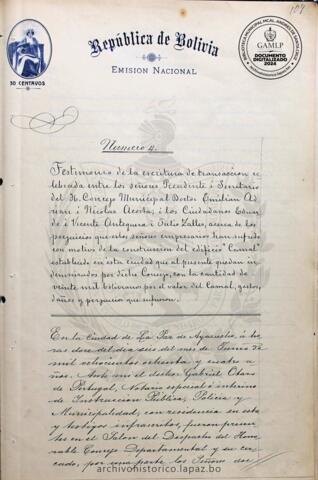 104
República de Bolivia
EMISION NACIONAL
50 CENTAVOS
BIBLIOTECA MUNICIPAL MCAL. ANDRÉS DE SANTA CRUZ
GAMLP
DOCUMENTO
DIGITALIZADO
2024
Numero 4.
Testimonio de la escritura de transaccion ce
lebrada entre los señores Presidente i Secretario
del H. Concejo Municipal Doctor Emilian
i Nicolas Acosta; i los Ciudadanos Eduar
do i Vicente Antequera i Julio Zalles, acerca de los
perjuicios que estos señores empresarios han sufrido
con motivo de la construccion del edificio "Camal"
establecido en esta ciudad que al presente quedan in
demnizados por dicho Concejo, con la cantidad de
veinte mil bolivianos por el valor del Camal, gastos,
daños y perjuicios que supusieron.
En la Ciudad de La Paz de Ayacucho, á ho
ras doce del dia seis del mes de Enero de
mil ochocientos ochenta y cuatro a
ños. Ante mi el doctor Gabriel
de Portugal, Notario especial é interino
de Instruccion Publica, Policia y
Municipalidad, con residencia en esta
y testigos infrascritos, fueron presen
tes en el Salon del Despacho del Hono
rable Concejo Departamental y su cer
cado, por una parte los Señores doc
archivohistorico.lapaz.bo